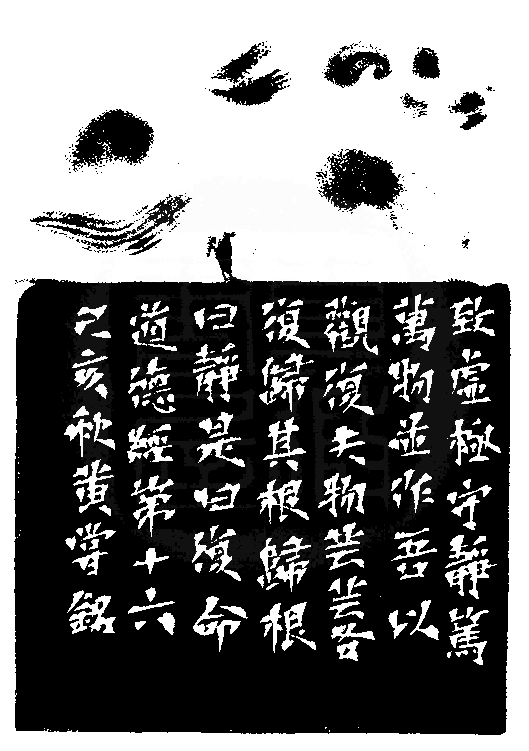 致虛極守靜篤
萬物並作吾以
觀復夫物芸芸各
復歸其根歸根
曰靜是曰復命
道德經第十六
己亥秋黄嘗銘